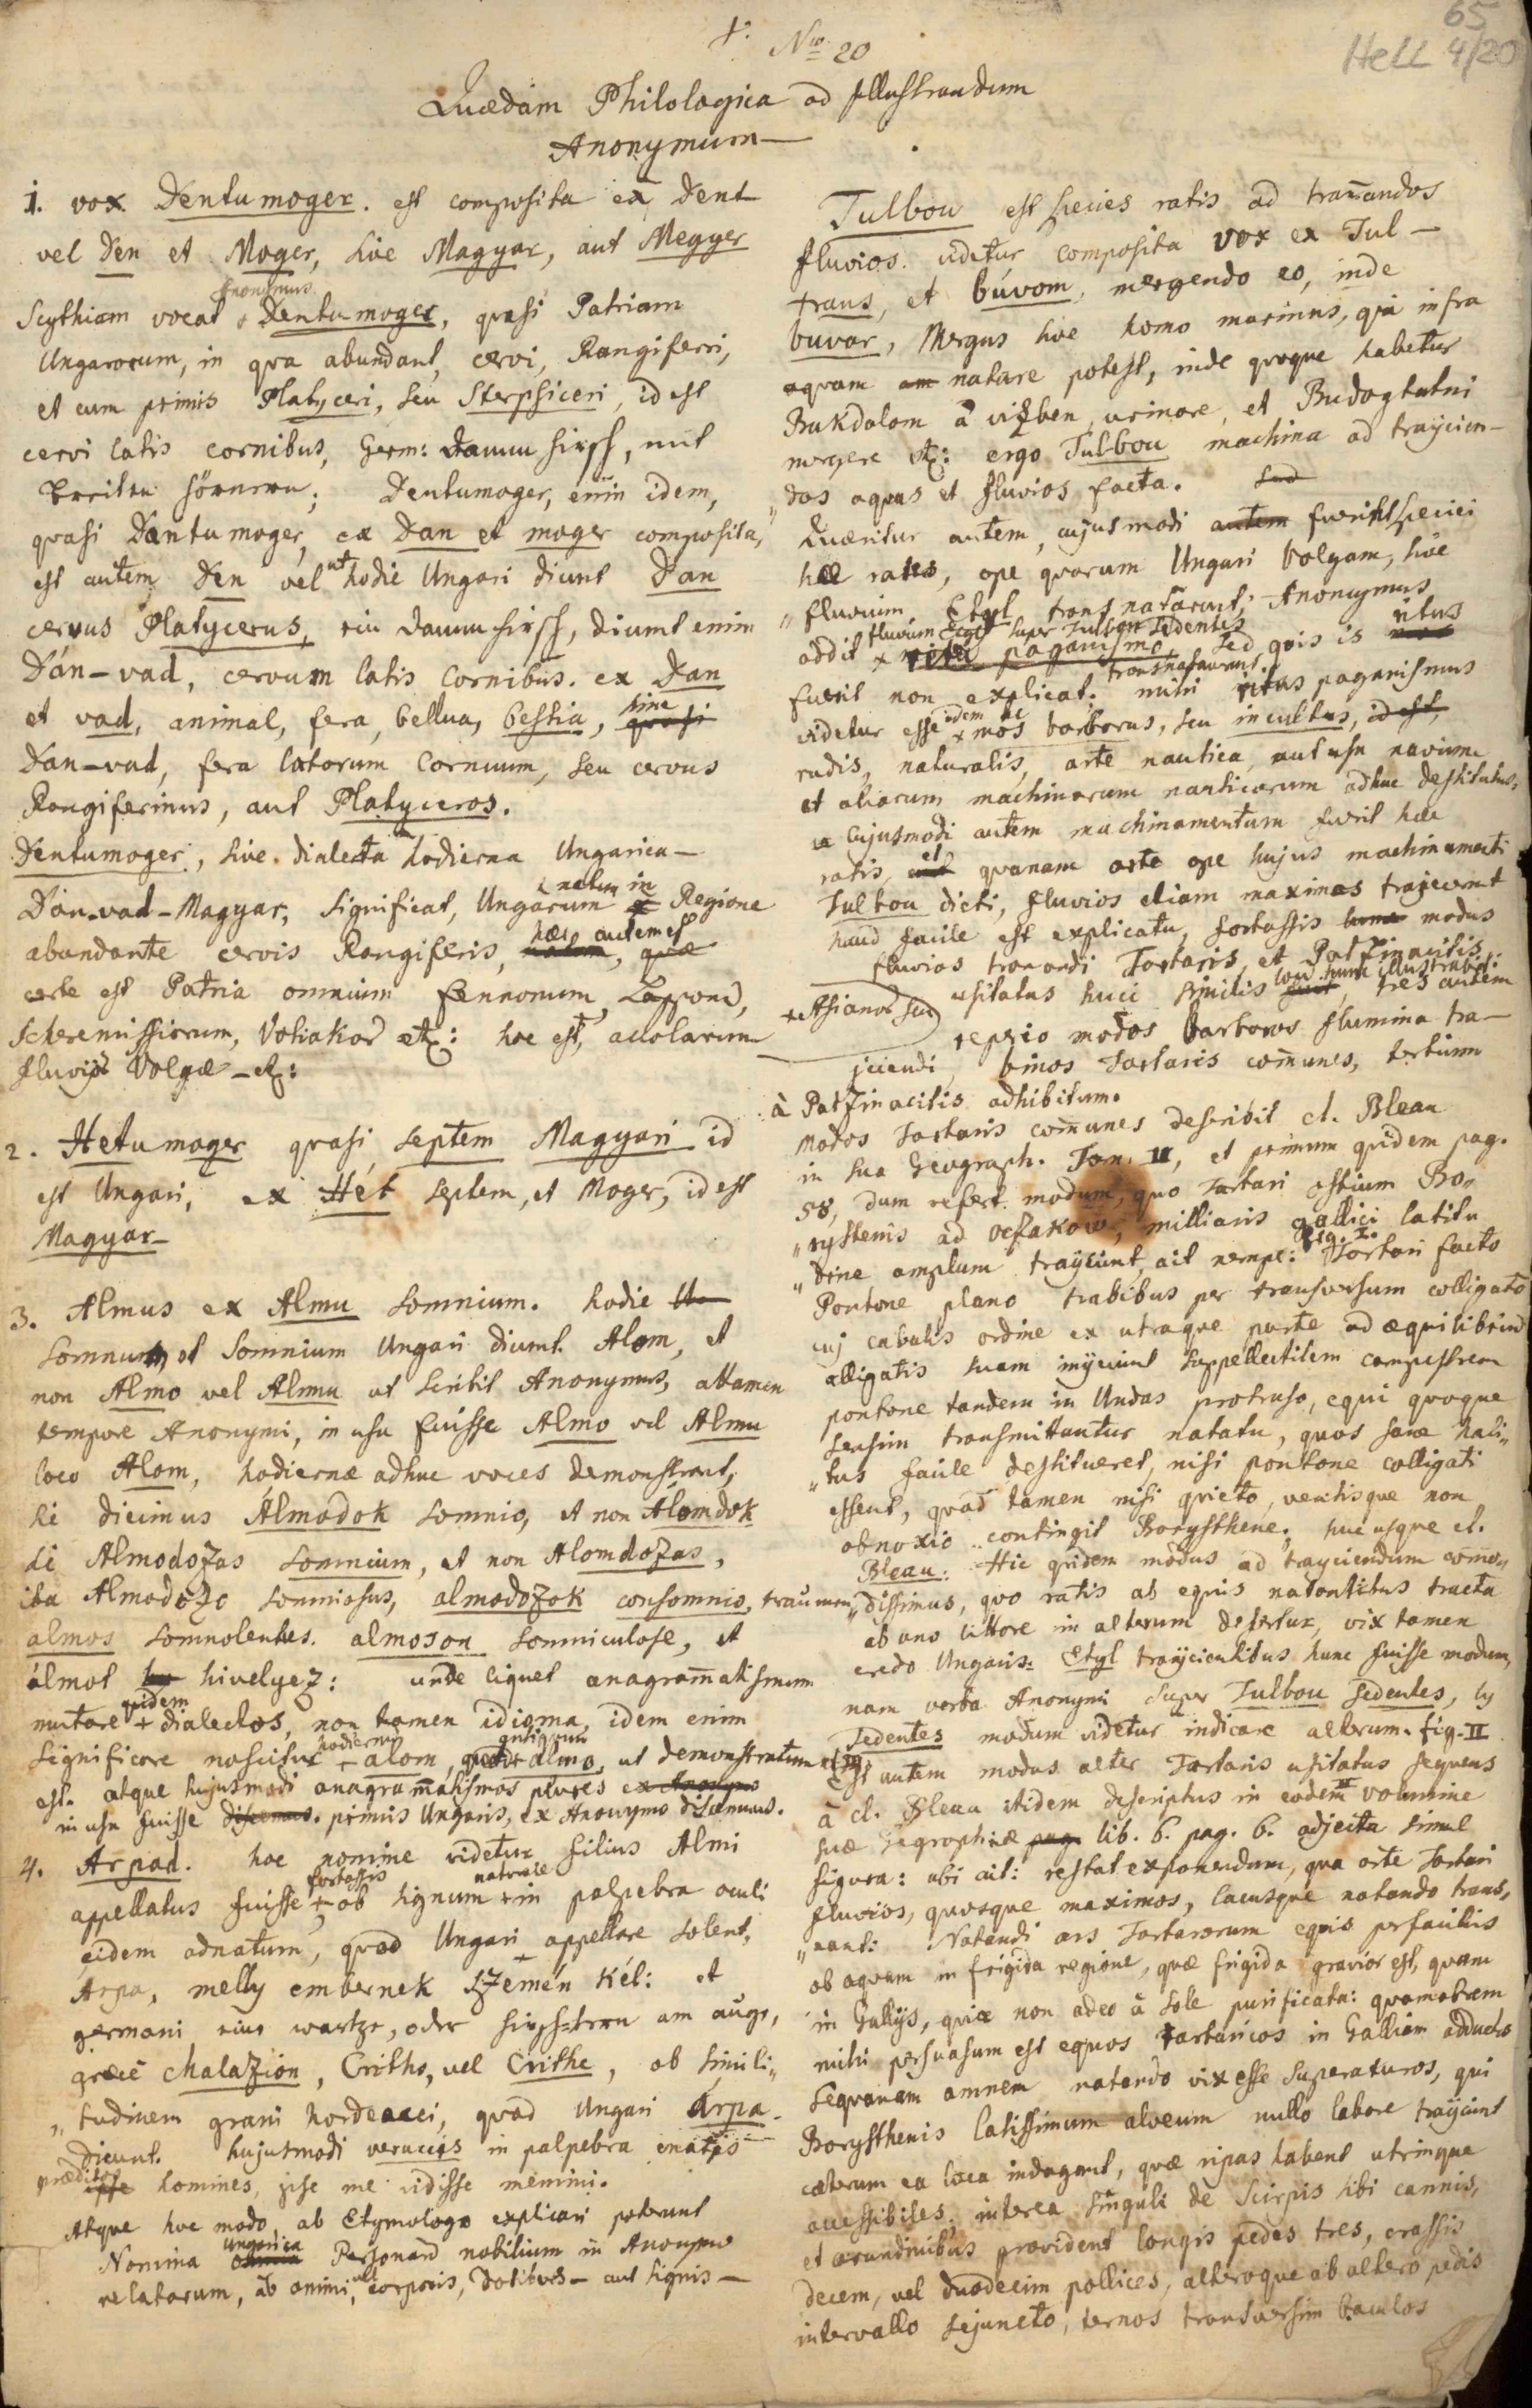 †. Nro 20
65
Hell 4/20
Quædam Philologica ad Illustrandum
Anonymum
1. vox Dentumoger. est composita ex Dent
vel Den et Moger, sive Magyar, aut Megyer
Anonymus
Scythiam vocat Dentumoger, quasi Patriam
Ungarorum, in qva abundant, cervi, Rangiferi,
et cum primis Platyceri, seu Sterpsiceri, id est
cervi latis cornibus, Germ: Dannhirsch, mit
breiten hörnern; Dentumoger, enim idem,
quasi Dantumoger, ex Dan et moger composita,
est autem Den vel ut hodie Ungari diunt Dan
cervus Platycerus, ein Dannhirsch, diunt enim
Dán-vad, cervum latis Cornibus. ex Dan
et vad, animal, fera, bellua, bestia, sine quasi
Dan-vad, fera latorum Cornuum, seu cervus
Rangiferinus, aut Platyceros.
Dentumoger, sive dialecta hodierna Ungarica
Dán-vad-Magyar, significat, Ungarum natum in Regione
abundante cervis Rangiferis, hæc autem est quæ
certe est Patria omnium Fennonum, Lappond,
Scheremissiorum, Votiakod etc: hoc est, accolarum
fluvii Volgæ - etc:
2. Hetumoger quasi septem Magyari id
est Ungari, ex Hét septem, et Moger, id est
Magyar
3. Almus ex Almu somnium. hodie
somnum, et somnium Ungari diunt Alom, et
non Almo vel Almu ut scribit Anonymus, attamen
tempore Anonymi, in usu fuisse Almo vel Almu
loco Alom, hodiernæ adhuc voces demonstrant,
si dicimus Álmodok somnio, et non Álomdok
si Almodozas somnium, et non Alomdozas,
ita Almodozo somniosus, almodozok consomnio, träumen
almos somnolentes. almoson somniculose, et
álmot hivelyez: unde liquet anagrammatismum
mutare quidem dialectos, non tamen idioma, idem enim
significare noscitur hodiernum alom, quod antiquum almo, ut demonstratum
est. atque hujusmodi anagrammatismos plures ex Anonymo
in usu fuisse discemus. primis Ungaris, ex Anonymo discemus.
4. Arpad. hoc nomine videtur filius Almi
appellatus fuisse fortassis ob signum naturale in palpebra oculi
eidem adnatum, quod Ungari appellare solent,
Arpa, melly embernek szemén kél: et
germani eine wartze, oder hirsch-korn am auge,
græcè chalazion, Critho, vel Crithe, ob simili„
„tudinem grani hordeacei, quod Ungari Árpa
dicunt. hujusmodi verucis in palpebra enatis
præditos homines, ipse me vidisse memini.
Atque hoc modo, ab Etymologo explicari poterunt
Nomina Ungarica Personard nobilium in Anonymo
relatorum, ab animi, vel corporis, dotibus - aut signis -
Tulbou est species ratis ad tranandos
fluvios. videtur composita vox ex Tul -
trans, et búvom, mergendo eo, inde
buvar, Mergus sive homo marinus, qui infra
aquam natare potest, inde quoque habetur
Bukdalom à vizben, urinare, et Budogtatni
mergere etc: ergo Tulbou machina ad trajicien-
„dos aquas et fluvios facta.
Quæritur autem, cujusmodi fuerint speciei
hæ rates, ope quarum Ungari Volgam, sive
„fluvium Etyl transnatarunt; Anonymus
addit fluvium Etyl super Tulbou sedentes ritu paganismo transnataverunt. Sed quis is ritus
fuerit non explicat; mihi ritus paganismus
videtur esse idem ac mos barbarus, seu incultus, id est,
rudis, naturalis, arte nautica, aut usu navium
et aliarum machinarum nauticarum adhuc destitutus,
cujusmodi autem machinamentum fuerit hæc
ratis, et quanam arte ope hujus machinamenti
Tulbou dicti, fluvios etiam maximos trajecerint
haud facile est explicatu, fortassis modus
fluvios tranandi Tartaris et Patzinacitis
Asianos seu usitatus huic similis hunc illustrabit: tres autem
reperio modos barbaros flumina tra-
jiciendi, binos Tartaris comunes, tertium
à Patzinacitis adhibitum.
Modos Tartaris comunes describit cl. Bleau
in sua Geograph. Tom. II, et primum quidem pag.
58, dum refert modum, quo Tartari ostium Bo„
„rysthenis ad Oczakow, milliaris gallici latitu
„dine amplum trajiciunt, ait nempe: Fig. I. Tartari facto
Pontone plano trabibus per transversum colligato
cuj caballis ordine ex utraque parte ad æquilibrium
alligatis suam injiciunt suppellectilem campestrem
pontone tandem in Undas protruso, equi quoque
sensim transmittuntur natatu, quos sane hali„
„tus facile destitueret, nisi pontone colligati
essent, quod tamen nisi quieto, ventisque non
obnoxio contingit Borysthene. huc usque cl.
Bleau: Hic quidem modus ad trajiciendum como„
„dissimus, quo ratis ab equis natantibus tracta
ab uno littore in alterum defertur, vix tamen
credo Ungaris Etyl trajicientibus hunc fuisse modum,
nam verba Anonymi super Tulbou sedentes, ly
sedentes modum videtur indicare alterum. fig. II
Est autem modus alter Tartaris usitatus sequens
à cl. Bleau itidem descriptus in eodem II volumine
suæ Geographiæ lib. 6. pag. 6. adjecta simul
figura: ubi ait: restat exponendum, qua arte Tartari
fluvios, quosque maximos, lacusque natando trans„
„nant: Natandi ars Tartarorum equis perfacilis
ob aquam in frigida regione, quæ frigida gravior est, quam
in Gallijs, quia non adeo à Sole purificata: quamobrem
mihi persuasum est equos Tartaricos in Galliam adductos
Sequanam amnem natando vix esse superaturos, qui
Borysthenis latissimum alveum nullo labore trajiciunt
cæterum ea loca indagant, quæ ripas habent utrinque
accessibiles, interea singuli de Scirpis sibi cannis,
et arundinibus provident longis pedes tres, crassis
decem, vel duodecim pollices, alteroque ab altero pedis
intervallo sejuncto, ternos transversim baculos